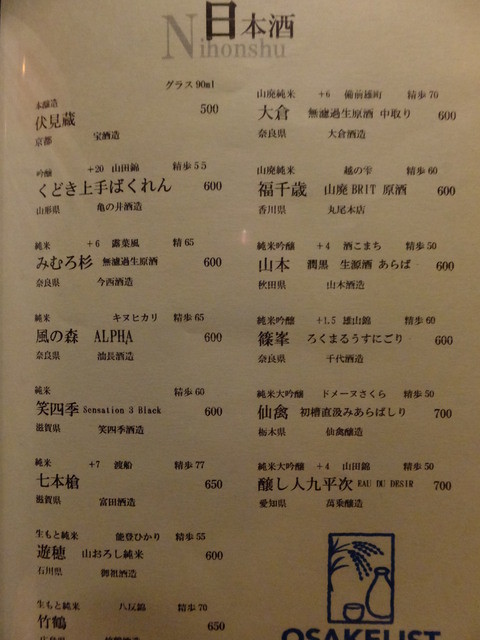 日本酒
Nihonshu
グラス90ml
本醸造
伏見蔵 500
京都 宝酒造
吟醸 +20 山田錦 精歩55
くどき上手ばくれん 600
山形県 亀の井酒造
純米 +6 露葉風 精65
みむろ杉 無濾過生原酒 600
奈良県 今西酒造
純米 キヌヒカリ 精歩65
風の森 ALPHA 600
奈良県 油長酒造
純米 精歩60
笑四季 Sensation 3 Black 600
滋賀県 笑四季酒造
純米 +7 渡船 精歩77
七本槍 650
滋賀県 富田酒造
生もと純米 能登ひかり 精歩55
遊穂 山おろし純米 600
石川県 御祖酒造
生もと純米 八反錦 精歩70
竹鶴 650
山廃純米 +6 備前雄町 精歩70
大倉 無濾過生原酒 中取り 600
奈良県 大倉酒造
山廃純米 越の雫 精歩60
福千歳 山廃 BRIT 原酒 600
香川県 丸尾本店
純米吟醸 +4 酒こまち 精歩50
山本 潤黒 生源酒 あらば 600
秋田県 山本酒造
純米吟醸 +1.5 雄山錦 精歩60
篠峯 ろくまるうすにごり 600
奈良県 千代酒造
純米大吟醸 ドメーヌさくら 精歩50
仙禽 初槽直汲みあらばしり 700
栃木県 仙禽醸造
純米大吟醸 +4 山田錦 精歩50
醸し人九平次 EAU DU DESIR 700
愛知県 萬乗醸造
OSAKELIST